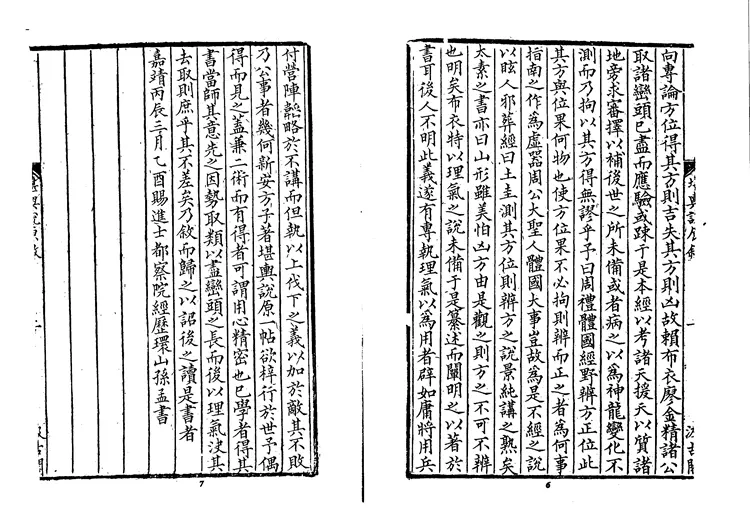 向專論方位得其方則吉失其方則凶故賴布衣廖金精諸公
取諸巒頭已盡而應驗或疎于是本經以考諸天援天以質諸
地旁求審擇以補後世之所未備或者病之以為神龍變化不
測而乃拘以其方得無謬乎予曰周禮體國經野辨方正位此
其方與位果何物也使方位果不必拘則辨而正之者為何事
指南之作為虛器周公大聖人體國大事豈故為是不經之說
以眩人邪葬經曰土圭測其方位則辨方之說景純講之熟矣
太素之書亦曰山形雖美怕凶方由是觀之則方之不可不辨
也明矣布衣特以理氣之說未備于是纂述而闡明之以著於
書耳後人不明此義遂有專執理氣以為用者辟如庸將用兵
6
付營陣韜略於不講而但執以上伐下之義以加於敵其不敗
乃公事者幾何新安方子著堪輿說原一帖欲梓行於世予偶
得而見之蓋兼二術而有得者可謂用心精密也已學者得其
書當師其意先之因勢取類以盡巒頭之長而後以理氣決其
去取則庶乎其不差矣乃敘而歸之以詔後之讀是書者
嘉靖丙辰三月乙酉賜進士都察院經歷環山孫孟書
7